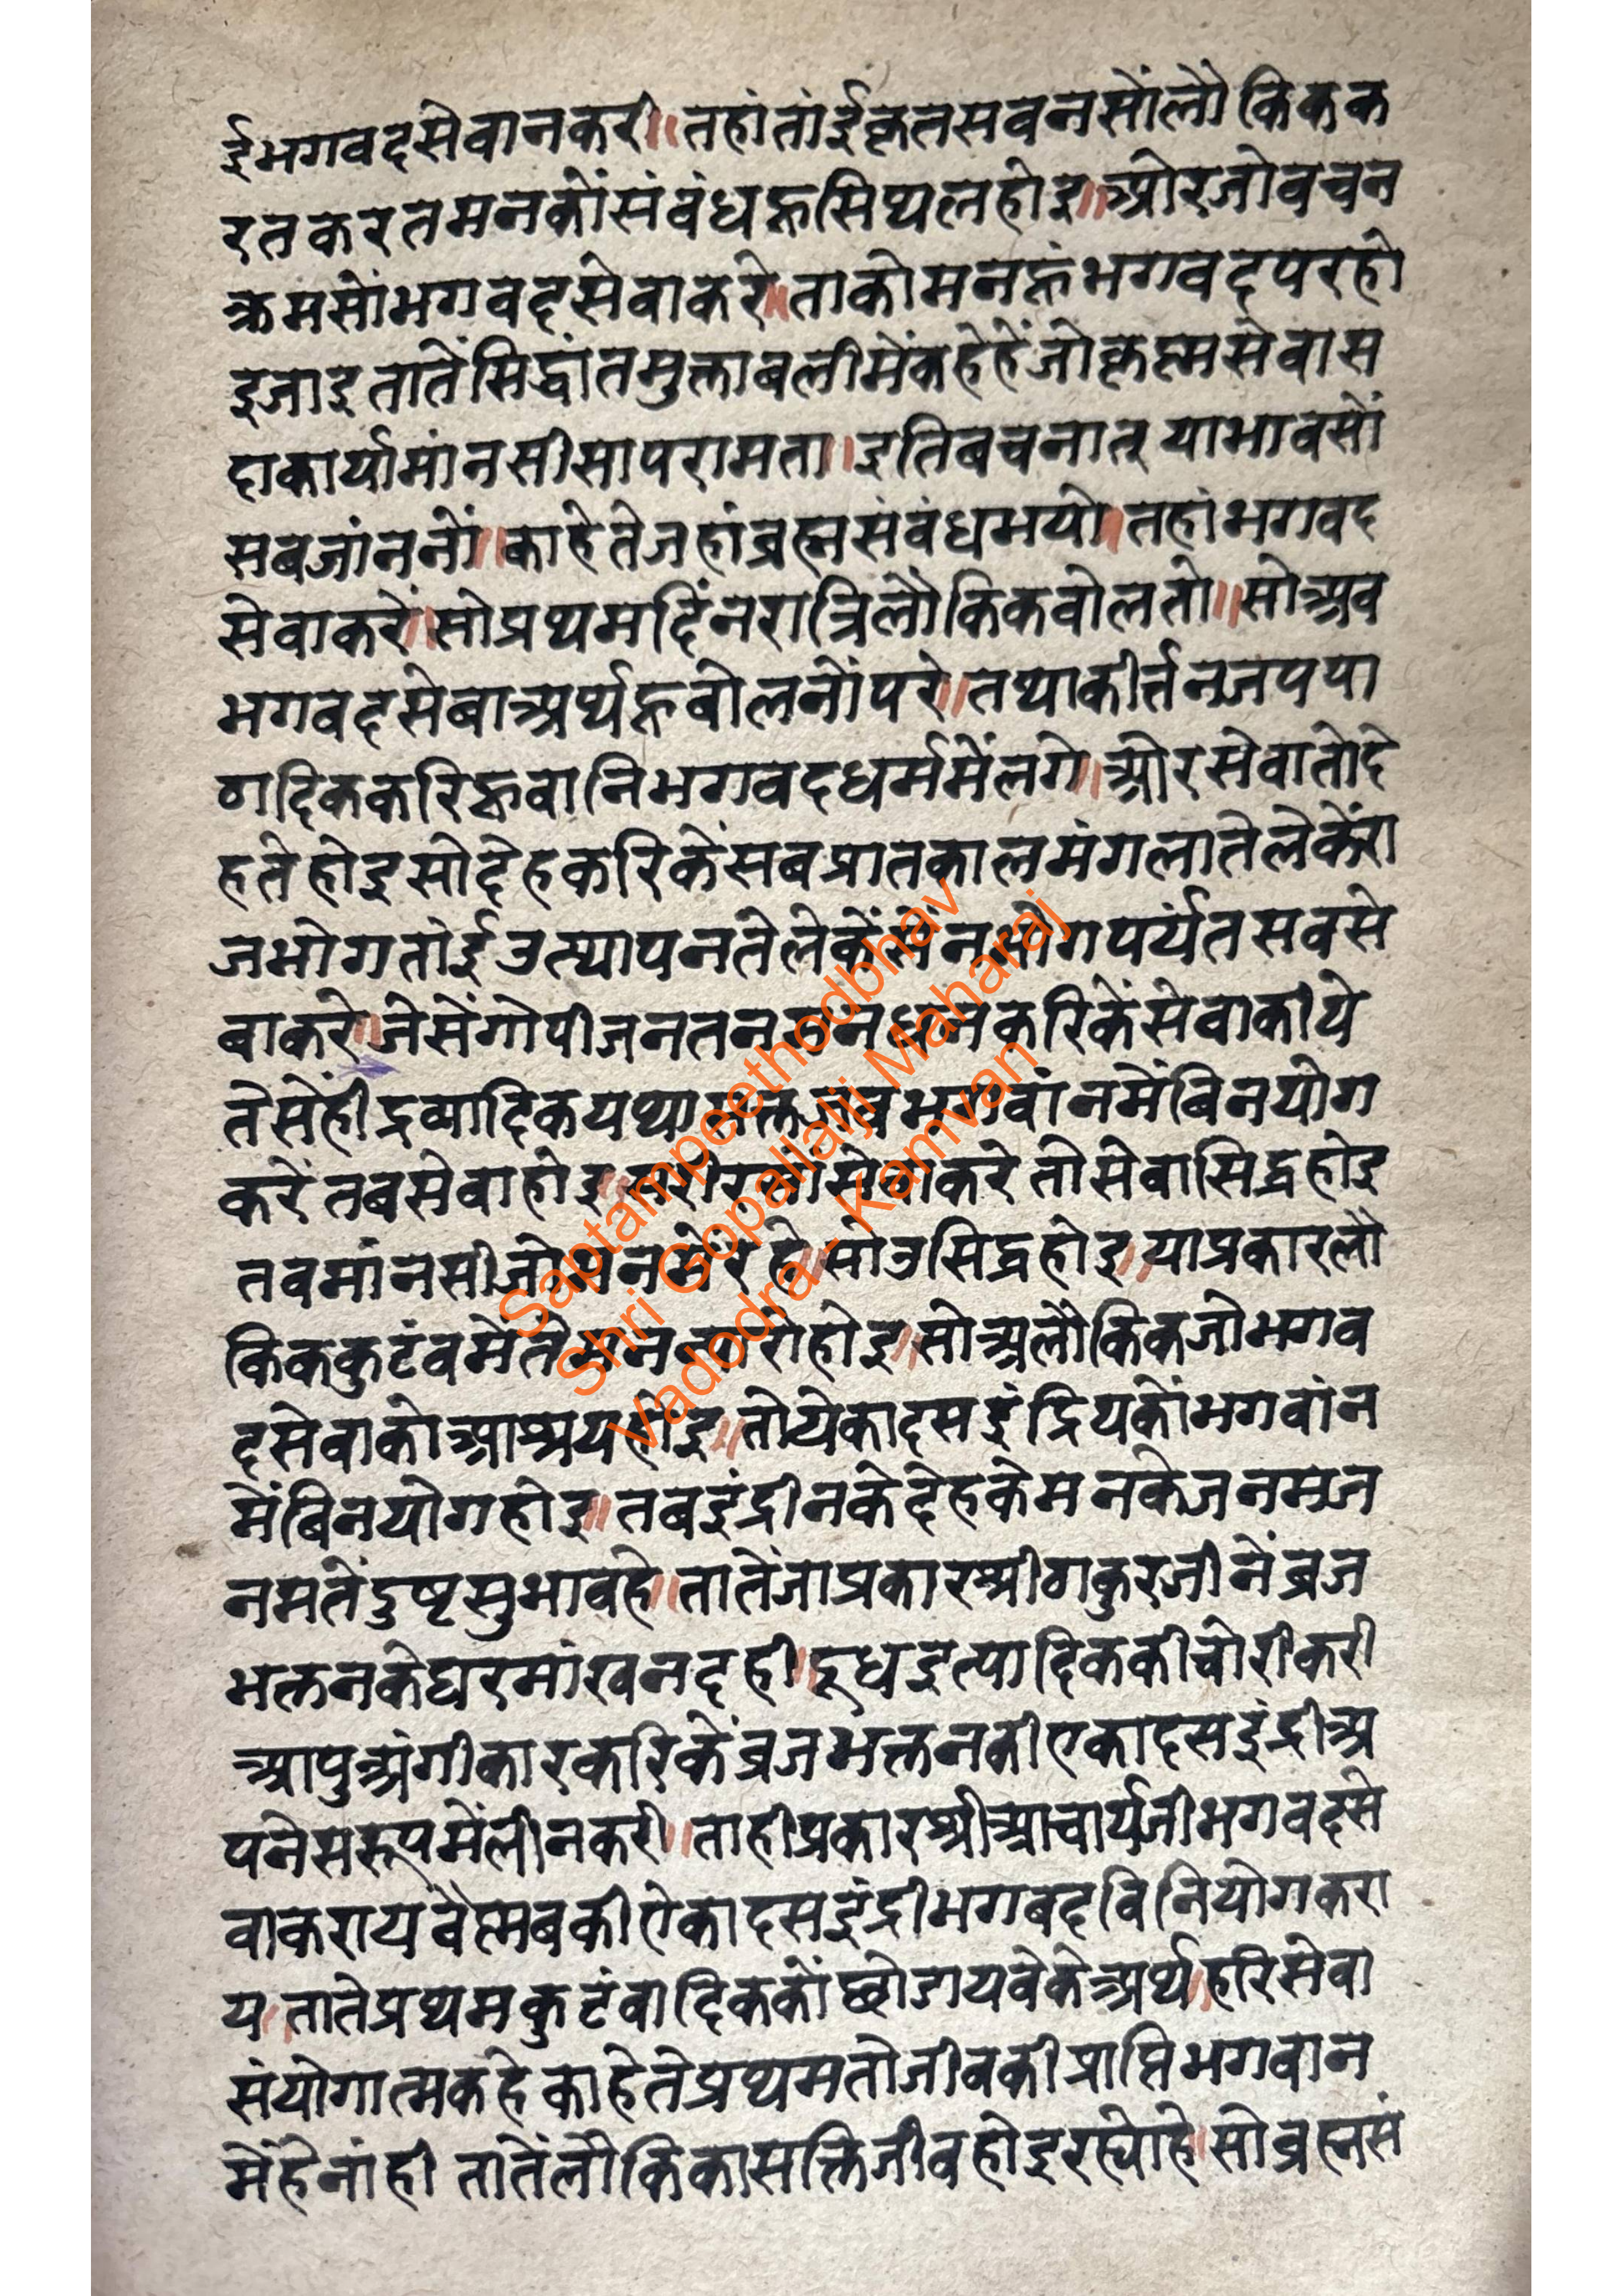 ईभगवदसेवानकरी॥तहांतांईकृतसवनसोंलौकिकक
रतकरतमनकोंसंवंधहूसिथलहोइ॥ओरजोवचन
क्रमसोंभगवदसेवाकरे॥ताकोमनहूंभगवदपरहो
इजाइतातेंसिद्धांतमुक्ताबलीमेंकहेहेंजोकृष्णसेवास
दाकार्यामांनसीसापरामता॥इतिबचनात्याभावसों
सबजांननों॥काहेतेजहांब्रह्मसंवंधभयो॥तहांभगवद
सेवाकरें॥सोप्रथमदिंनरात्रिलौकिकवोलतो॥सोअव
भगवदसेबाअर्थहूबोलनोंपरे॥तथाकीर्त्तनजपपा
ठादिककरिहूवानिभगवदधर्ममेंलगे॥ओरसेवातोदे
हतेहोइसोदेहकरिकेंसबप्रातकालमंगलातेलेकेंरा
जभोगतांईउत्थापनतेलेकेंसेंनभोगपर्यंतसवसे
बाकरे॥जेसेंगोपीजनतनमनधनकरिकेंसेवाकीये
तेसेंहीद्रव्यादिकयथासक्तजबभगवांनमेंबिनयोग
करेंतबसेबाहोइ॥सरीरसोंसेवाकरेतोसेवासिद्धहोइ
तवमांनसीजोमनमेंरहे॥सोउसिद्धहोइ॥याप्रकारलौ
किककुटंवमेंतेमनन्यारोहोइ॥सोअलौकिकजोभगव
दसेवाकोआश्रयहोइ॥तोयेकादसइंद्रियकोंभगवांन
मेंबिनयोगहोइ॥तबइंद्रीनकेदेहकेमनकेजनमज
नमतेंदुष्टसुभावहे॥तातेंजाप्रकारश्रीठाकुरजीनेंब्रज
भक्तनकेघरमांखनदही॥दूधइत्यादिककीचोरीकरी
आपुअंगीकारकरिकेंब्रजभक्तनकीएकादसइंद्रीअ
पनेसरूपमेंलीनकरी॥ताहीप्रकारश्रीआचार्यजीभगवदसे
वाकरायवैष्णबकीऐकादसइंद्रीभगबदविनियोगकरा
य॥तातेप्रथमकुटंवादिककोंछोडायवेकेअर्थ॥हरिसेवा
संयोगात्मकहेकाहेतेप्रथमतोजीवकीप्राप्तिभगवान
मेंहेनांहीतातेंलौकिकासक्तिजीवहोइरह्योहे॥सोब्रह्मसं
Saptampeethodbhav
Shri Gopallalji Maharaj
Vadodra - Kamvan